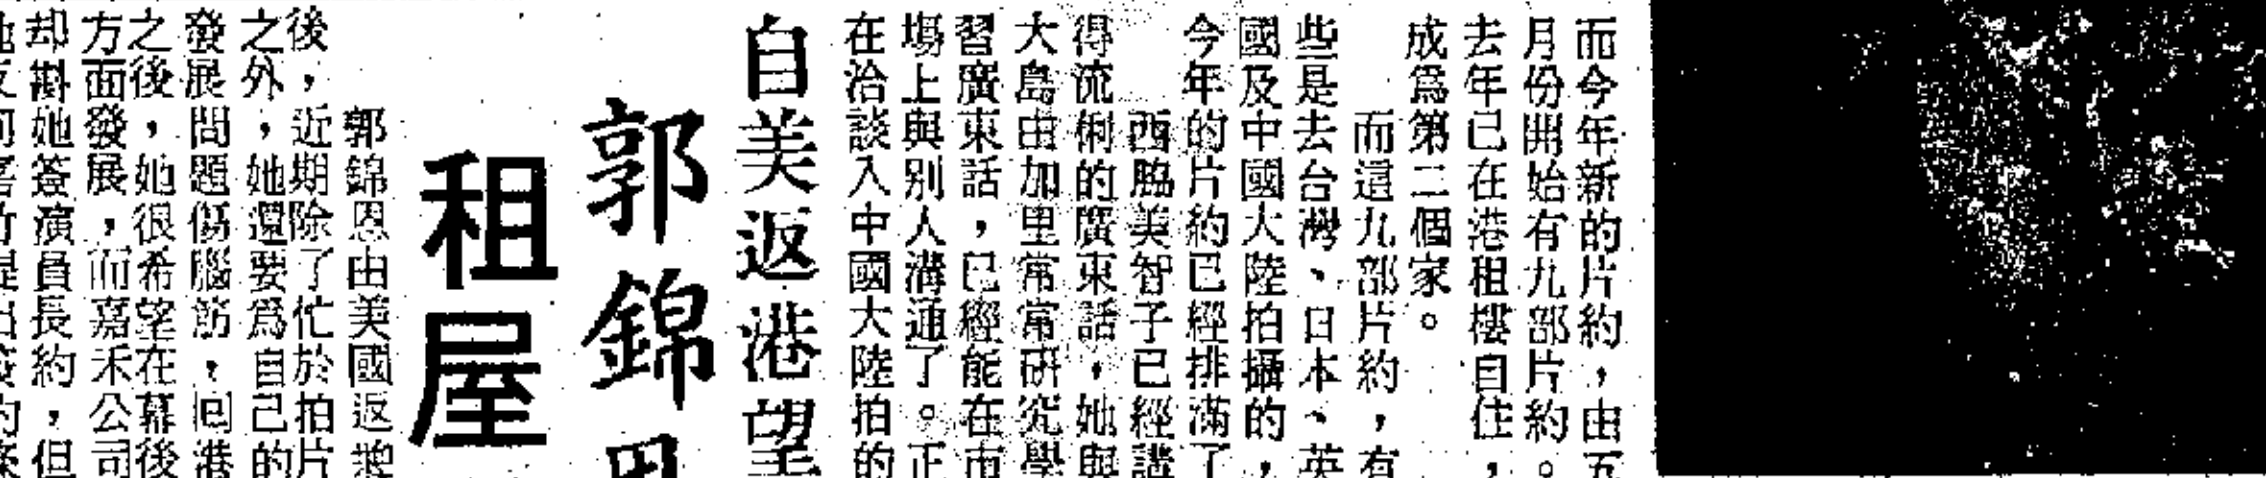 而今年新的片約，由五
月份開始有九部片約。
去年已在港租樓自住，
成爲第二個家。
而這九部片約，有
些是去台灣、日本、英
國及中國大陸拍攝的，
今年的片約已經排滿了
西脇美智子已經講
得流俐的廣東話，她與
大島由加里常常研究學
習廣東話，已經能在市
塲上與別人溝通了。正
在洽談入中國大陸拍的
自美返港望
郭錦恩
租屋
郭錦恩由美國返港
後，近期除了忙於拍片
之外，她還要爲自己的
發展問題傷腦筋，回港
之後，她很希望在幕後
方面發展，而嘉禾公司
却斟她簽演員長約，但